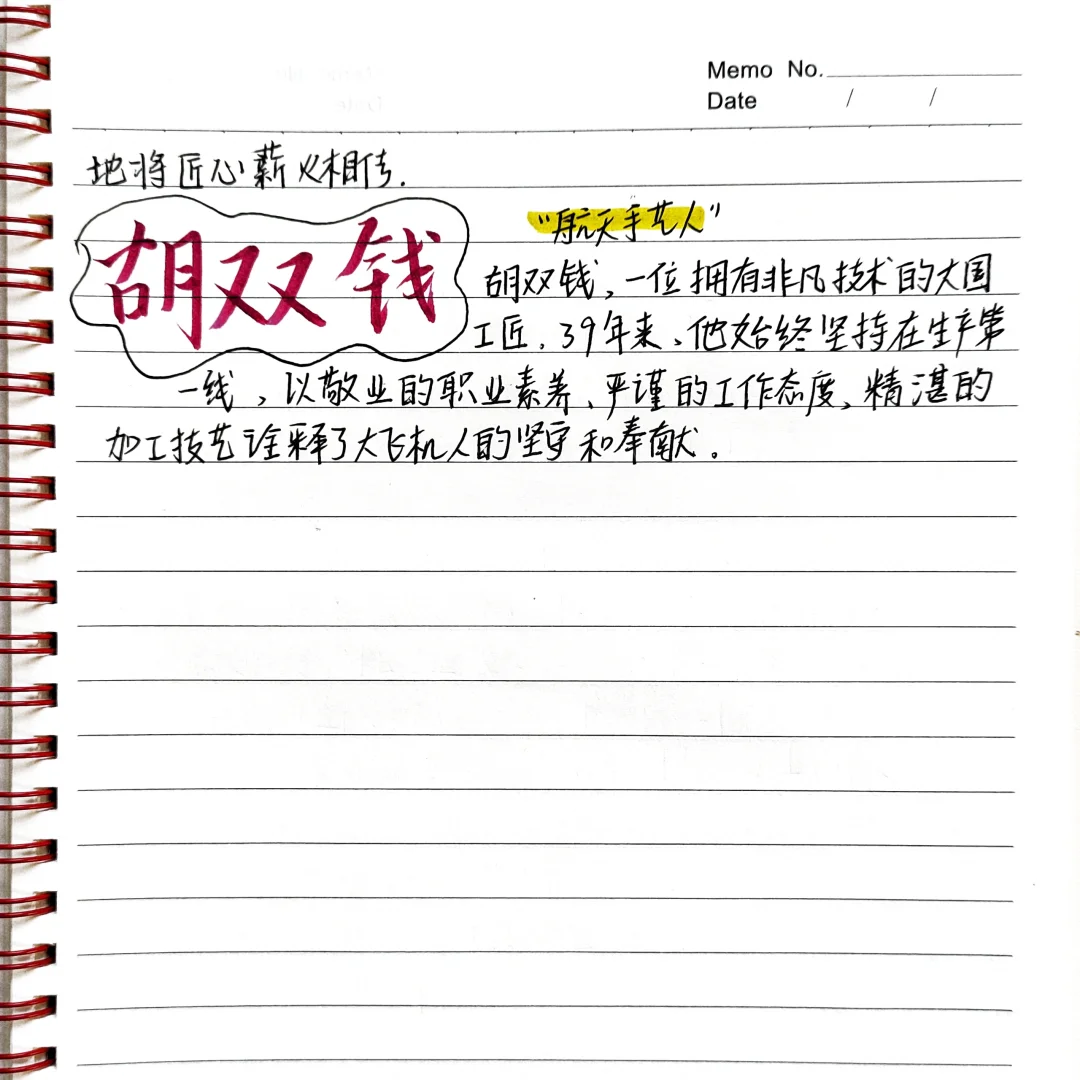 Memo No.
Date / /
地将匠心薪火相传.
胡双钱
"航天手艺人"
胡双钱,一位拥有非凡技术的大国
工匠.39年来、他始终坚持在生产第
一线,以敬业的职业素养、严谨的工作态度、精湛的
加工技艺诠释了大飞机人的坚守和奉献。